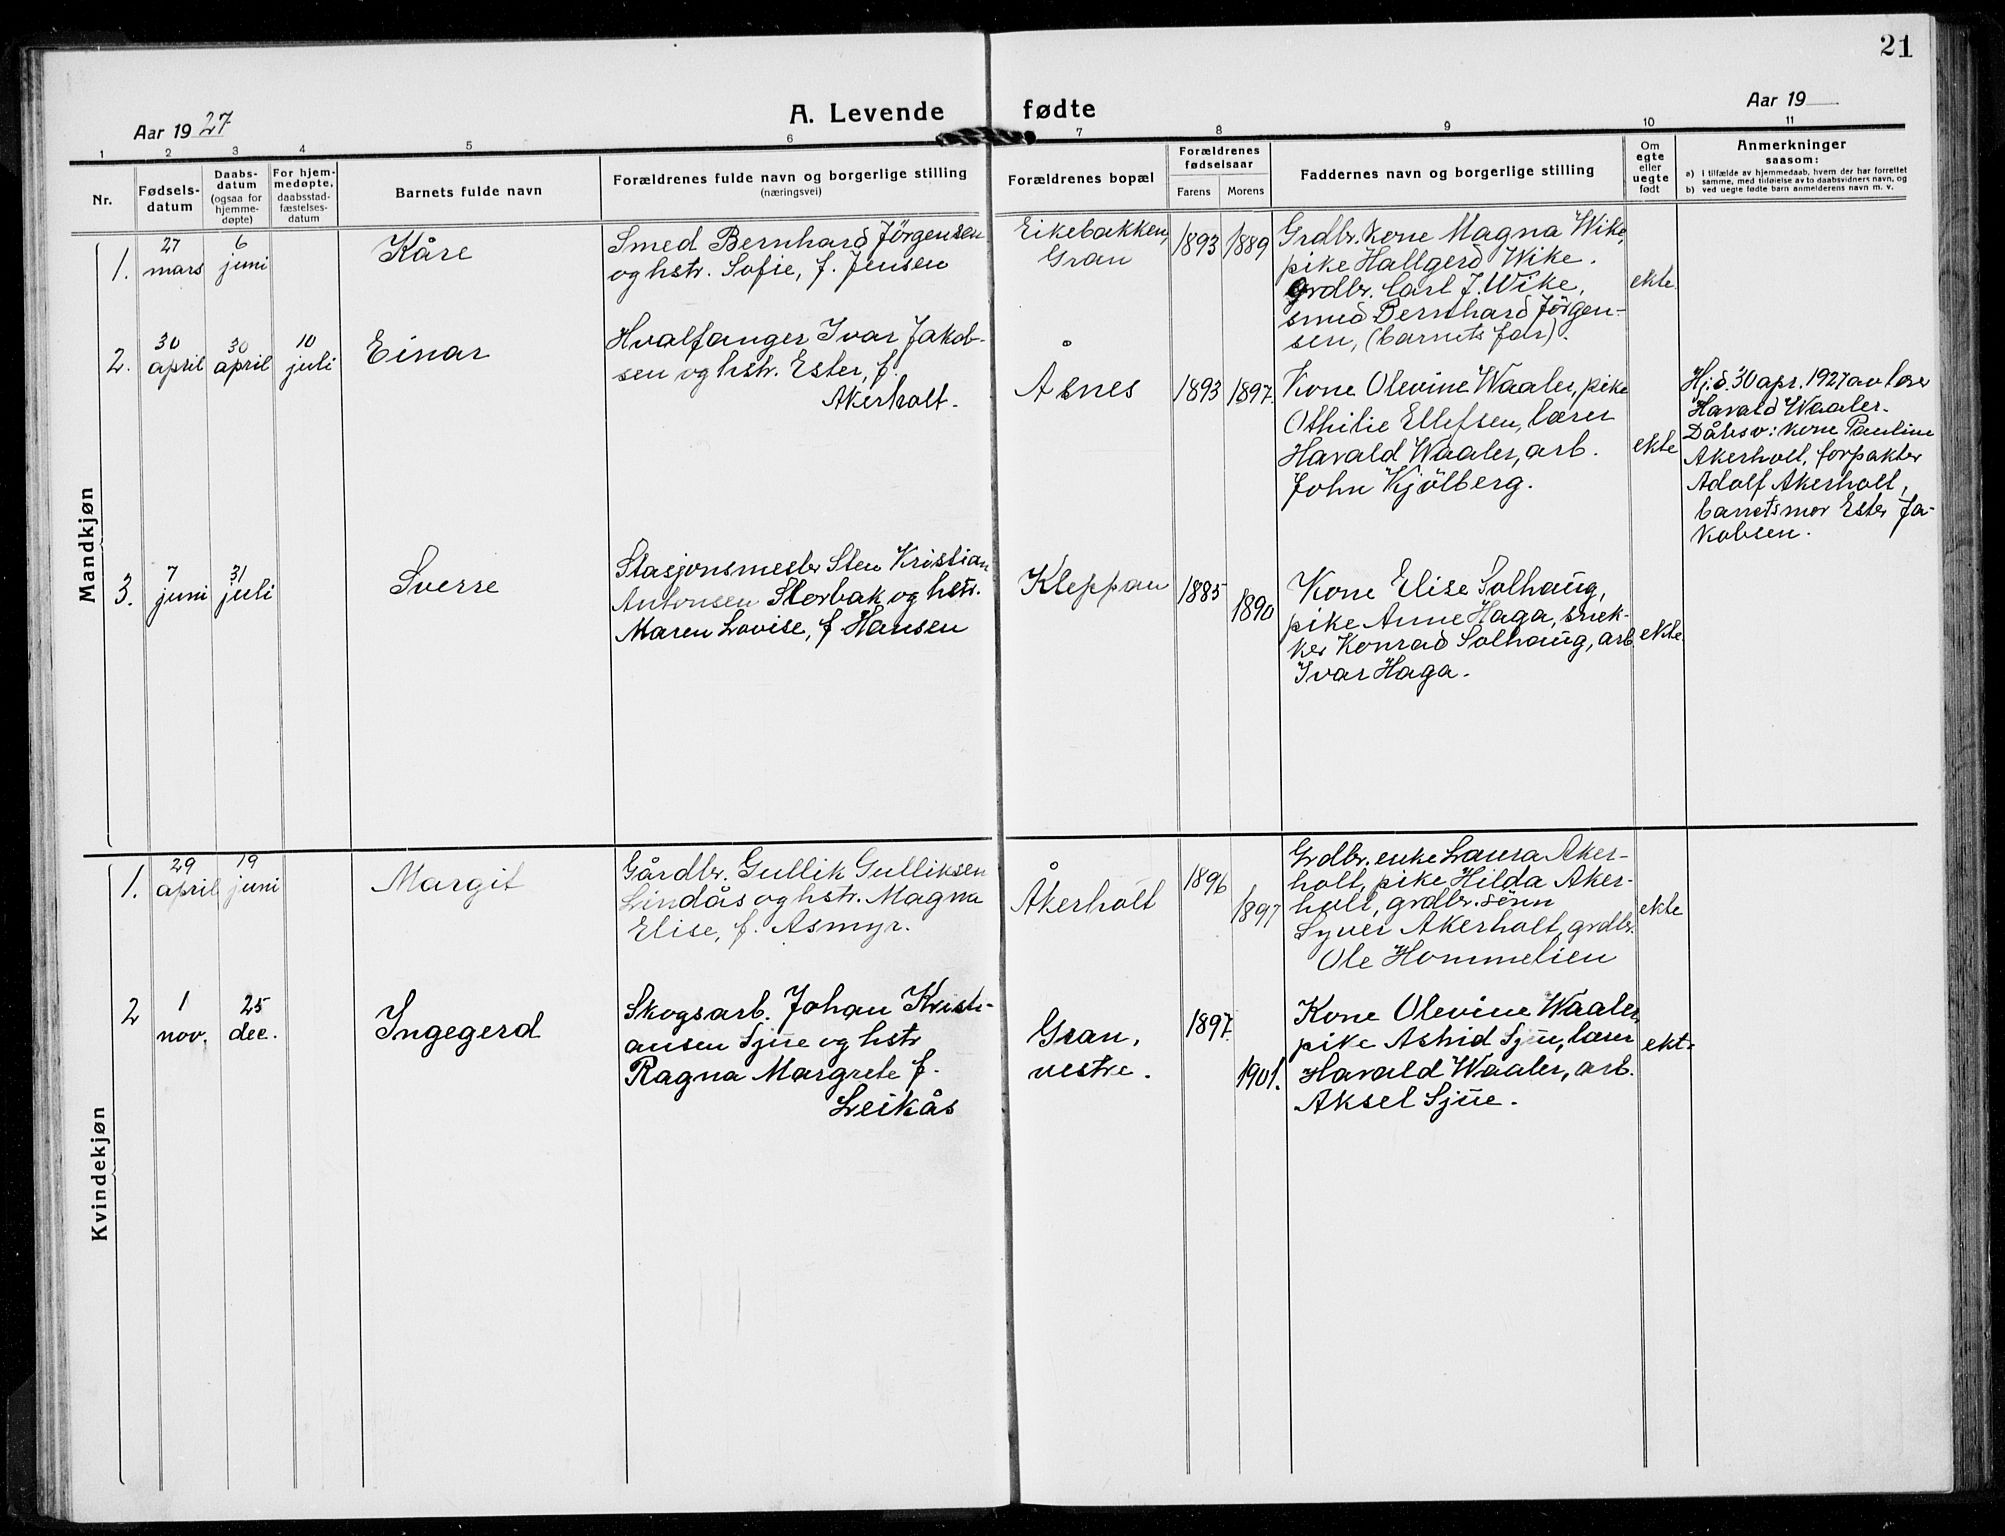 21
A. Levende fødte
Aar 1927
Aar 19
1 2 3 4 5 6 7 8 9 10 11
Nr.
Fødsels-
datum
Daabs-
datum
(ogsaa for
hjemme-
døpte)
For hjem-
medøpte,
daabsstad-
fæstelses-
datum
Barnets fulde navn
Forældrenes fulde navn og borgerlige stilling
(næringsvei)
Forældrenes bopæl
Forældrenes
fødselsaar
Farens Morens
Faddernes navn og borgerlige stilling
Om
egte
eller
uegte
født
Anmerkninger
saasom:
a) i tilfælde av hjemmedaab, hvem der har forrettet
samme, med tilføielse av to daabsvidners navn, og
b) ved uegte fødte barn anmelderens navn m. v.
Mandkjøn
1.
27
mars
6
juni
Kåre
Smed Bernhard Jörgensen
og hstr. Sofie, f. Jensen
Eikebakken,
Gran
1893 1889
Grdbr. kone Magna Wike,
pike Hallgerd Wike.
grdbr. Carl J. Wike,
smed Bernhard Jörgen-
sen, (barnets far).
ekte
2.
30
april
30
april
10
juli
Einar
Hvalfanger Ivar Jakob-
sen og hstr. Ester, f.
Akerholt.
Åsnes
1893 1897.
Kone Olevine Waaler, pike
Othilie Ellefsen, lærer
Harald Waaler, arb.
John Kjölberg.
ekte
Hj.d. 30 apr. 1927 av lærer
Harald Waaler.
Dåbsv: kone Pauline
Akerholt, forpakter
Adolf Akerholt,
barnetsmor Ester Ja-
kobsen.
3.
7
juni
31
juli
Sverre
Stasjonsmester Sten Kristian
Antonsen Storbak og hstr.
Maren Lovise, f Hansen
Kleppan
1885
1890
Kone Elise Solhaug,
pike Anne Haga, snek-
ker Konrad Solhaug, arb
Ivar Haga.
ekte.
Kvindekjøn
1.
29
april
19
juni
Margit
Gårdbr. Gullik Gulliksen
Lindås og hstr. Magna
Elise, f. Asmyr.
Åkerholt
1896
1897
Grdbr. enke Laura Aker-
holt, pike Hilda Aker-
holt, grdbr. sönn
Syver Akerholt, grdbr.
Ole Hommelien
ekte
2
1
nov.
25
dec.
Ingegerd
Skogsarb. Johan Kristi-
ansen Sjue og hstr
Ragna Margrete f.
Leikås
Gran,
vestre.
1897.
1901.
Kone Olevine Waaler,
pike Astrid Sjue, lærer
Harald Waaler, arb.
Aksel Sjue.
ekt-